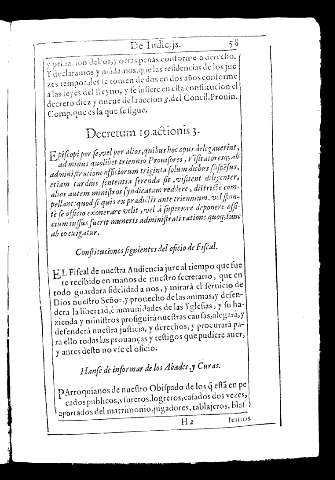 De Indicijs. 58
y priuacion de bos, y otras penas conforme a derecho,
Y declaramos y mãdamos, que las residencias de los jue
zes temporales se tomen de dos en dos años conforme
a las leyes del Reyno, y se insiere en esta constitucion el
decreto diez y nueue de la accion 3. del Concil. Prouin.
Comp. que es la que se sigue.
Decretum 19. actionis 3.
Episcopi per se, vel per alios, quibus hoc opus delegauerint,
ad minus quolibet triennio Prouisores, Visitatoresq; ab
administratione officiorum triginta solum diebus suspēsos,
etiam tardius sententia ferenda sit, visitent diligenter,
alios autem ministros syndicatum reddere, districtè com-
pellant: quod si quis en prædictis ante triennium, vel spon-
te se officio exonerare velit, vel à superiore deponere offi-
cium iussus fuerit muneris administrati rationes quoq; tunc
ab eo exigatur.
Constituciones siguientes del oficio de Fiscal.
EL Fiscal de nuestra Audiencia jure al tiempo que fue
re recibido en manos de nuestro secretario, que en
todo guardara fidelidad a nos, y mirarà el seruicio de
Dios nuestro Señor, y prouecho de las animas, y defen-
dera la libertad, è immunidades de las Yglesias, y su ha-
zienda y ministros proseguirà nuestras causas, alegará, y
defenderà nuestra justicia, y derechos, y procurarà pa-
ra ello todas las prouanças y testigos que pudiere auer,
y antes desto no vse el oficio.
Hanse de informar de los Abades, y Curas.
PArroquianos de nuestro Obispado de los q̃ està en pe
cados publicos, vsureros, logreros, casados dos vezes,
apartados del matrimonio, jugadores, tablajeros, blas
H 2 femos